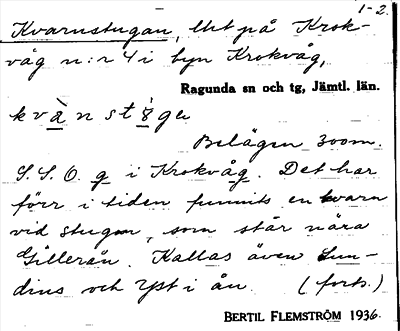 1-2.
Kvarnstugan, lht på Krok-
våg n:r 4 i byn Krokvåg,
Ragunda sn och tg, Jämtl. län.
Belägen 300m.
S.S.O. g i Krokvåg. Det har
förr i tiden funnits en kvarn
vid stugan, som står nära
Gillerån. Kallas även Sun-
dins och Yst i ån. (forts.)
BERTIL FLEMSTRÖM 1936.